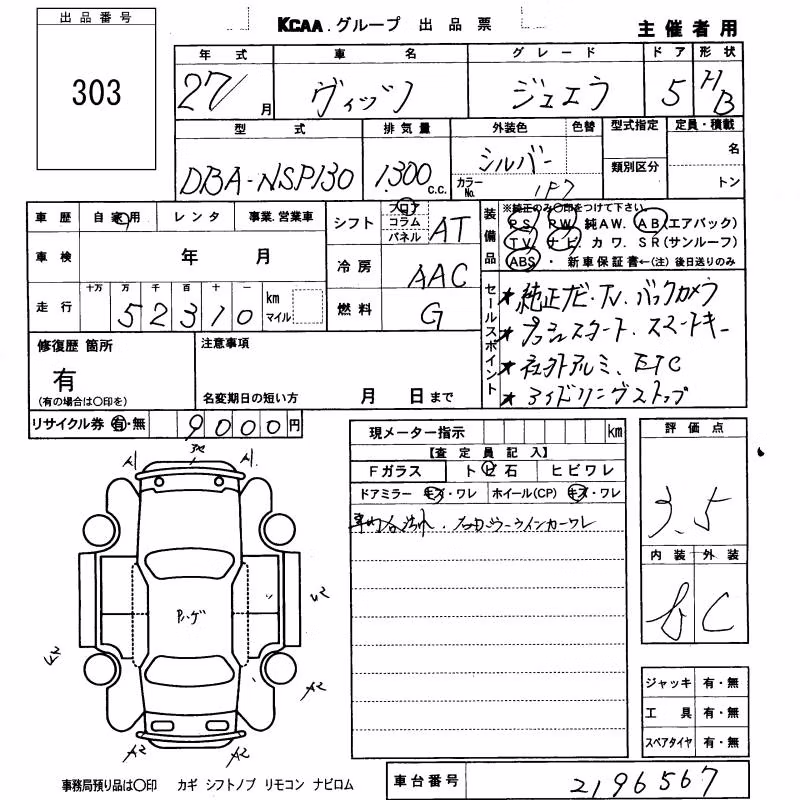 出品番号
303
KCAA.グループ 出品票
主催者用
年式 車名 グレード ドア 形状
27/ 月 ヴィッツ ジュエラ 5 HB
型式 排気量 外装色 色替 型式指定 定員・積載
DBA-NSP130 1300 c.c. シルバー 名
カラーNo. 1F7 類別区分 トン
車歴 自家用 レンタ 事業.営業車
車検 年 月
走行 十万 万 千 百 十 一 km マイル
52310
シフト フロア コラム パネル AT
冷房 AAC
燃料 G
装備品
※純正のみ〇印をつけて下さい。
PS PW 純AW. AB(エアバック)
TV. ナビ カワ. SR(サンルーフ)
ABS ・ 新車保証書←(注) 後日送りのみ
セールスポイント
★純正ナビ・TV.バックカメラ
★プッシュスタート、スマートキー
★社外アルミ、ETC
★アイドリングストップ
修復歴 箇所
有
(有の場合は〇印を)
注意事項
名変期日の短い方 月 日まで
リサイクル券 有・無 9000円
現メーター指示 km
【査定員記入】
Fガラス トビ石 ヒビワレ
ドアミラー キズ・ワレ ホイール(CP) キズ・ワレ
ウインカーワレ
評価点
3.5
内装 外装
C
A1 A1
Pハゲ
A2
A2 A2
ジャッキ 有・無
工具 有・無
スペアタイヤ 有・無
事務局預り品は〇印 カギ シフトノブ リモコン ナビロム
車台番号 2196567